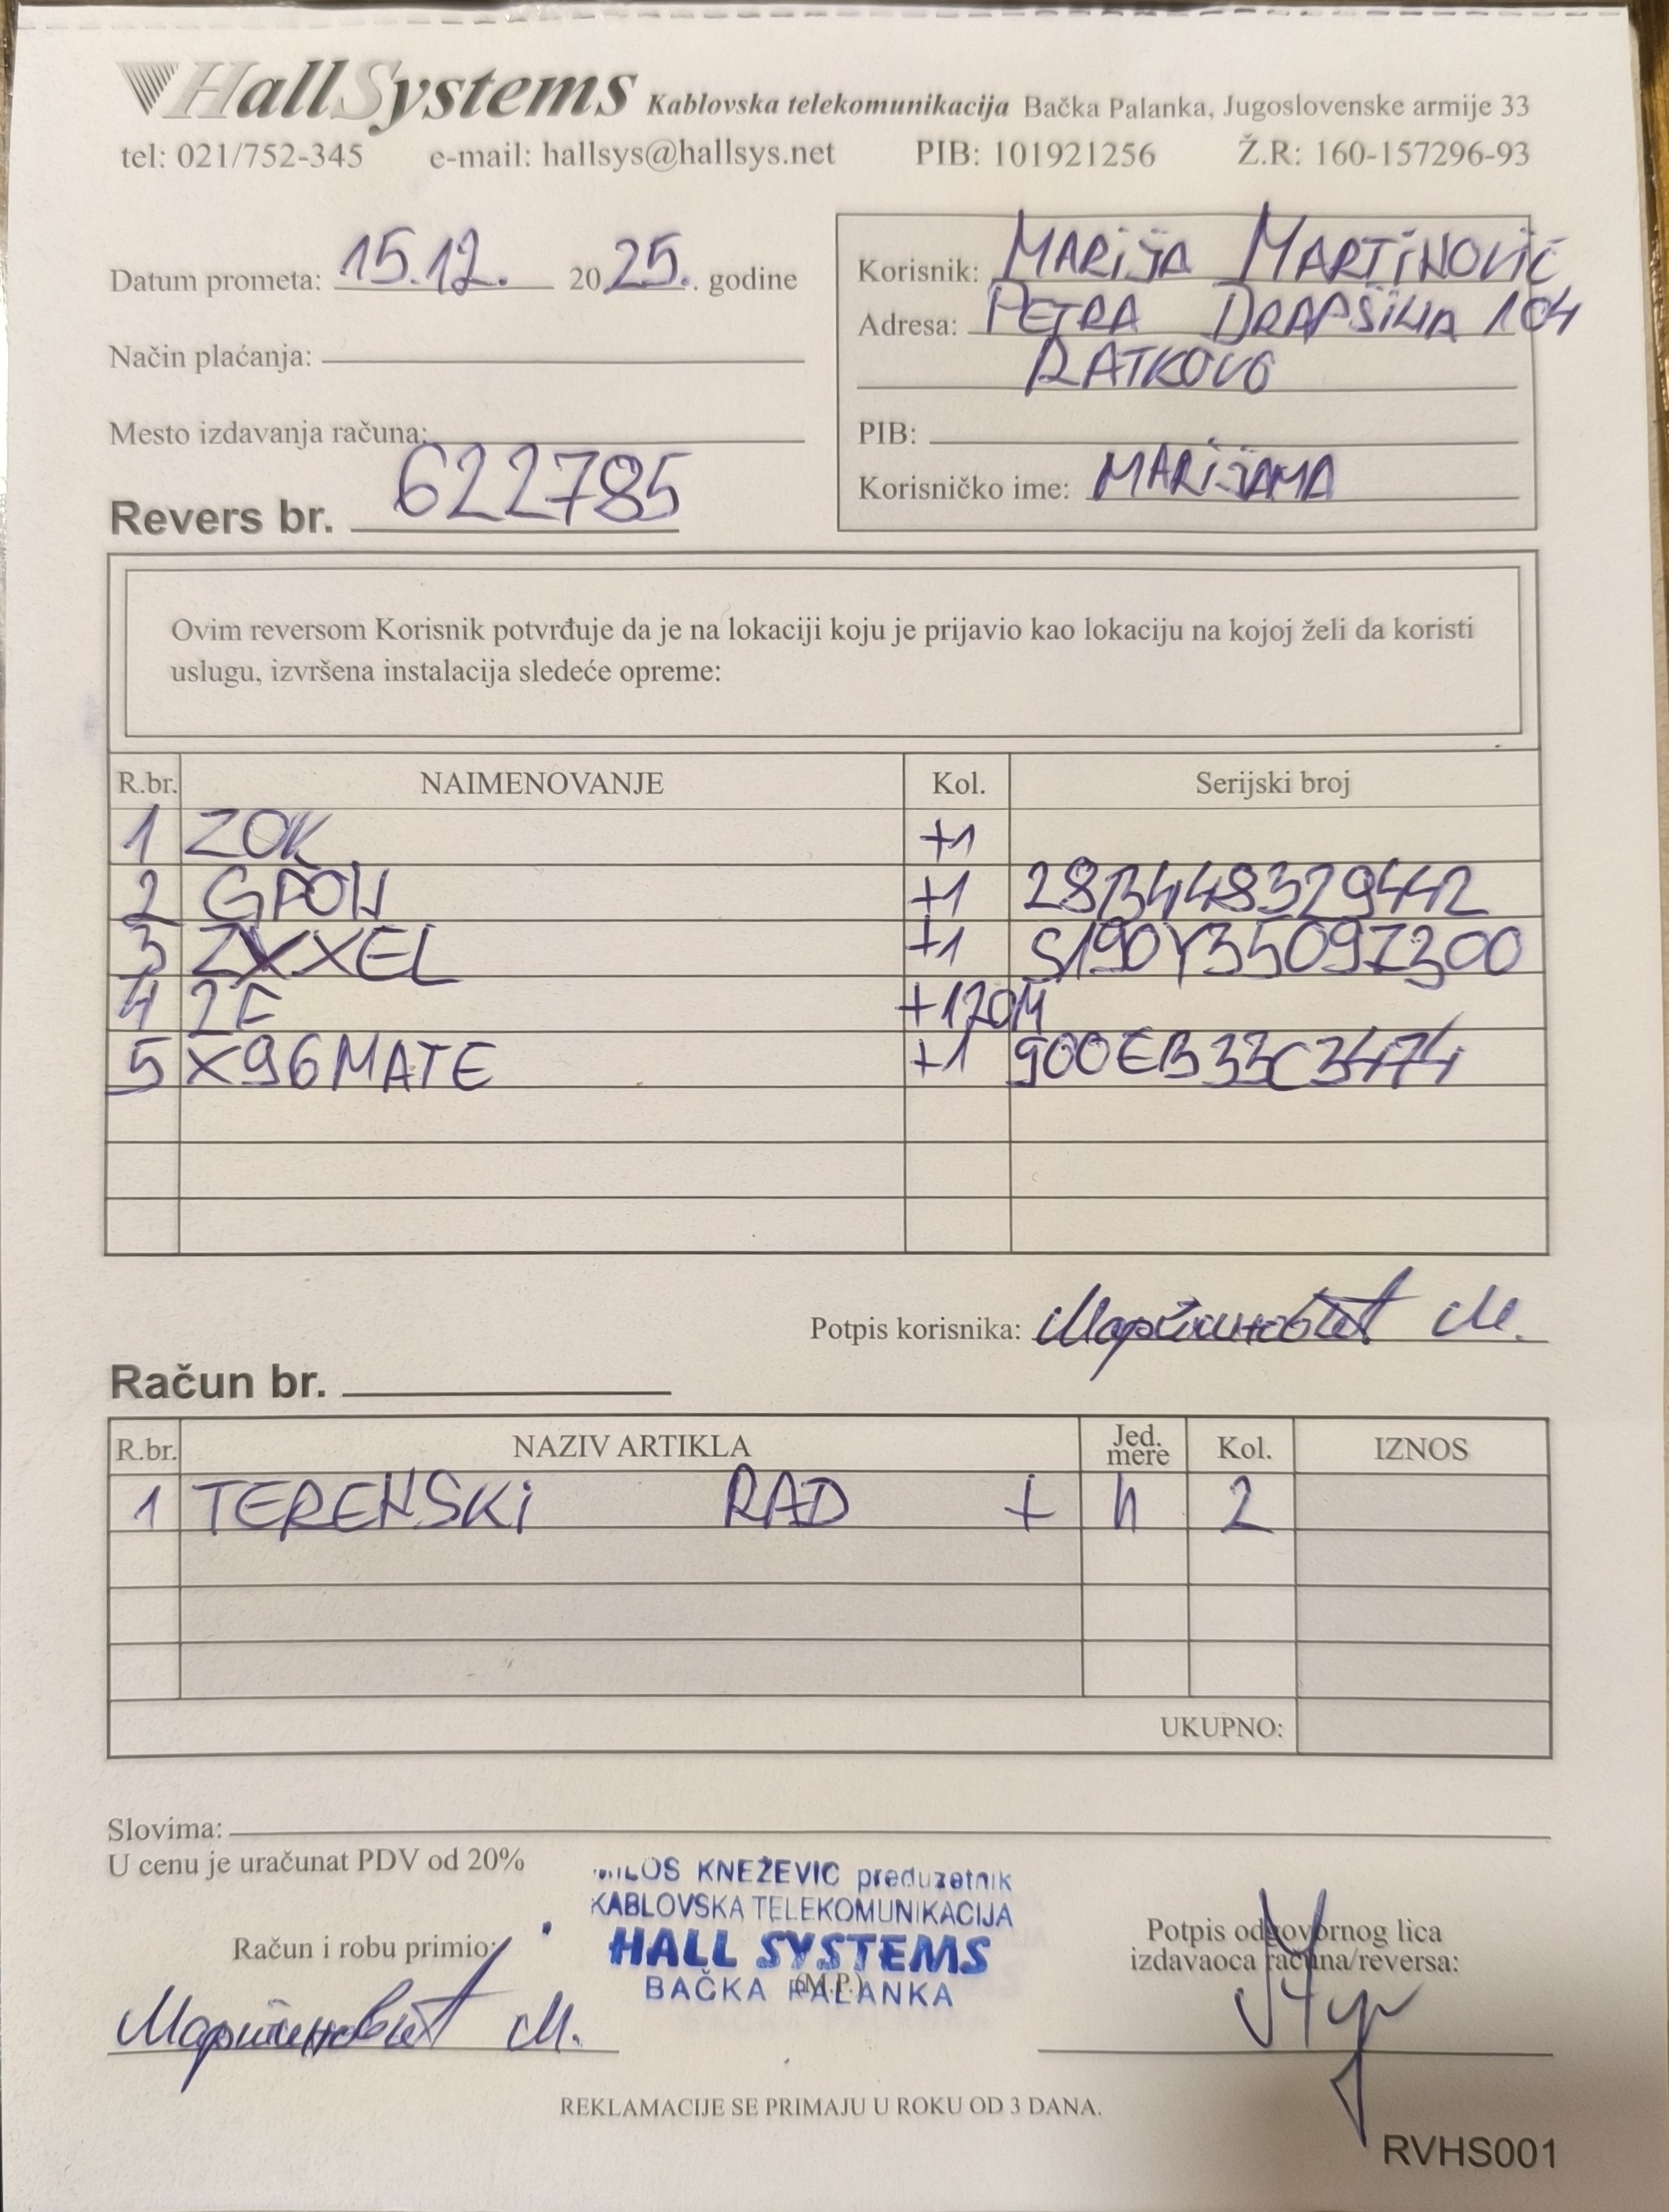 HallSystems Kablovska telekomunikacija Bačka Palanka, Jugoslovenske armije 33
tel: 021/752-345 e-mail: hallsys@hallsys.net PIB: 101921256 Ž.R: 160-157296-93
Datum prometa: 15.12. 2025. godine
Način plaćanja:
Mesto izdavanja računa:
Revers br. 622785
Korisnik: MARIJA MARTINOVIĆ
Adresa: PETRA DRAPŠINA 104
RATKOVO
PIB:
Korisničko ime: MARIJAMA
Ovim reversom Korisnik potvrđuje da je na lokaciji koju je prijavio kao lokaciju na kojoj želi da koristi
uslugu, izvršena instalacija sledeće opreme:
R.br. NAIMENOVANJE Kol. Serijski broj
1 ZOK +1
2 GPON +1 283448329442
3 ZXXEL +1 S190Y35097300
4 2F +120M
5 X96MATE +1 900EB33C3474
Potpis korisnika: Мартиновић М.
Račun br.
R.br. NAZIV ARTIKLA Jed. mere Kol. IZNOS
1 TERENSKI RAD + h 2
UKUPNO:
Slovima:
U cenu je uračunat PDV od 20%
MILOS KNEŽEVIC preduzetnik
KABLOVSKA TELEKOMUNIKACIJA
HALL SYSTEMS
BAČKA PALANKA
(M.P.)
Račun i robu primio:
Мартиновић М.
Potpis odgovornog lica
izdavaoca računa/reversa:
REKLAMACIJE SE PRIMAJU U ROKU OD 3 DANA.
RVHS001